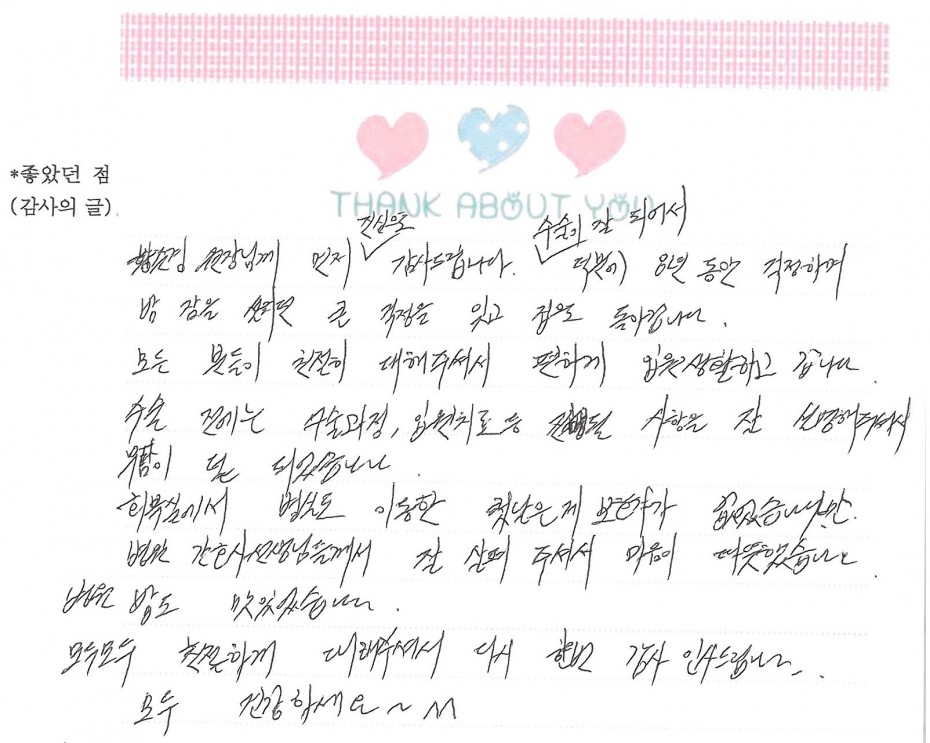 THANK ABOUT YOU
*좋았던 점
(감사의 글).
원장님께 먼저 진심으로 감사드립니다. 수술이 잘 되어서 덕분이 8일 동안 걱정하며
밤 잠을 큰 걱정을 잊고 집으로 돌아갑니다.
모든 분들이 친절히 대해주셔서 편하게 입원생활하고 갑니다.
수술 전에는 수술과정, 입원치료 등 사항을 잘 설명해주셔서
부담이 덜 되었습니다.
회복실에서 병실로 이동한 첫날은 제 보호자가 없었습니다만.
병원 간호사선생님들께서 잘 살펴 주셔서 마음이 따뜻했습니다.
병원 밥도 맛있었습니다.
모두모두 친절하게 대해주셔서 다시 한번 감사 인사드립니다.
모두 건강하세요~